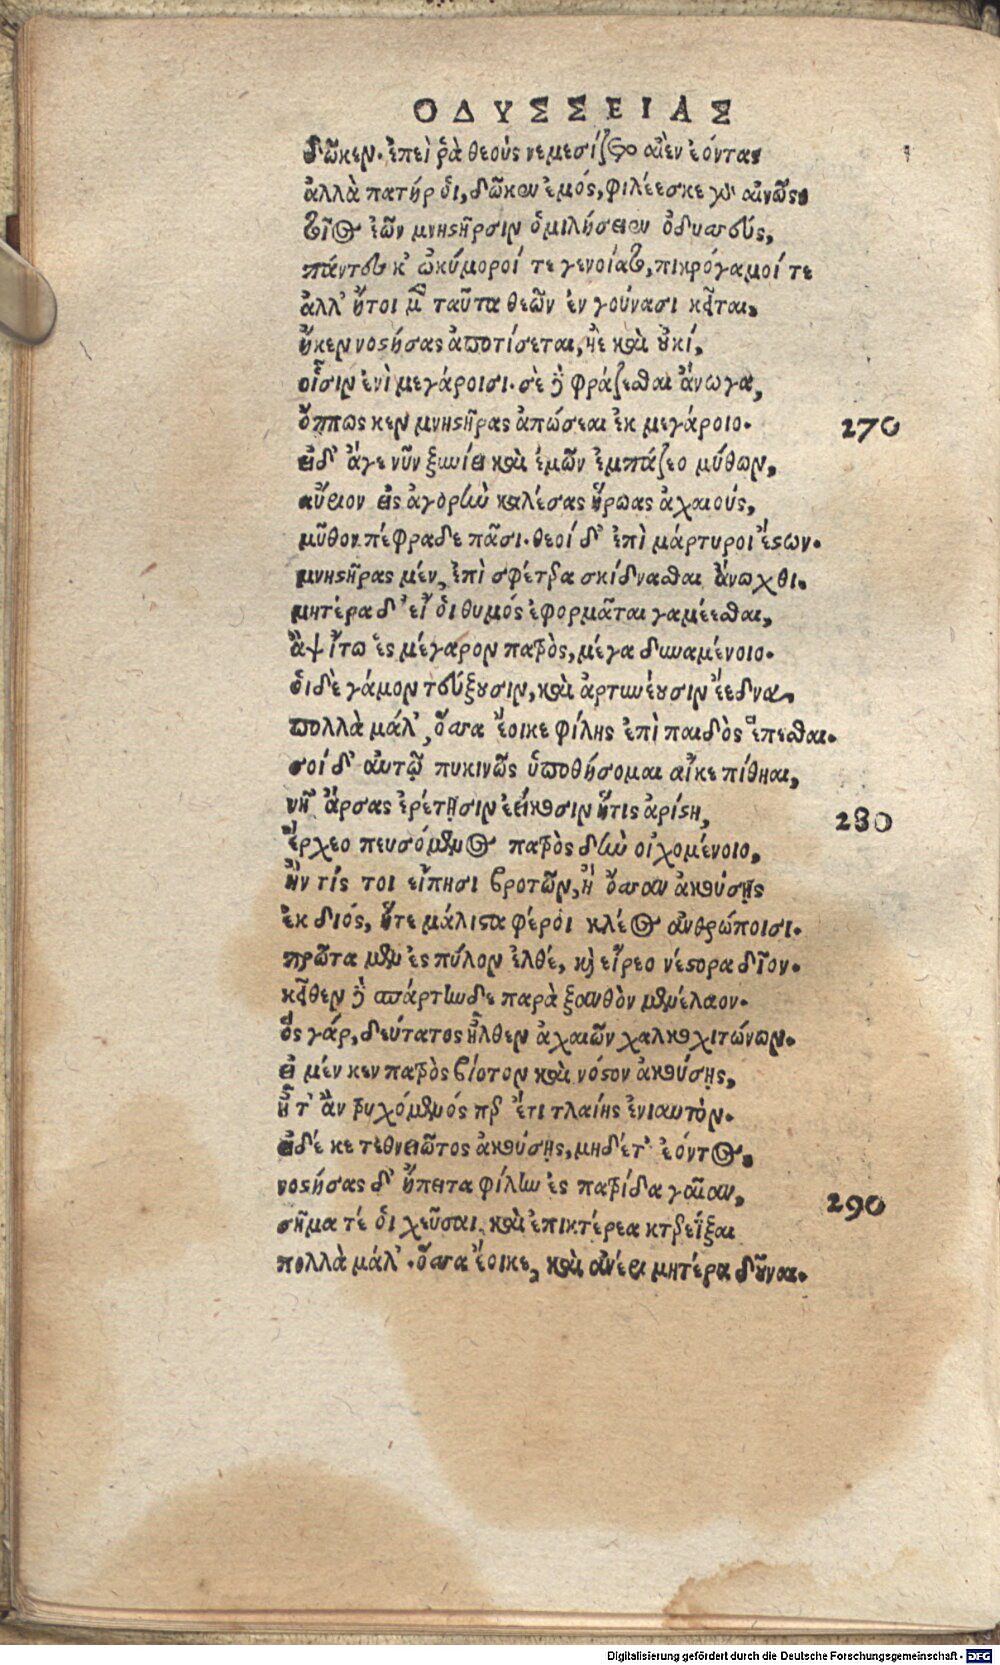 ΟΔΥΣΣΕΙΑΣ
δῶκεν. ἐπεὶ ῥὰ θεοὺς νεμεσίζετο αἰὲν ἐόντας
ἀλλὰ πατήρ οἱ, δῶκεν ἐμός, φιλέεσκε γὰρ αἰνῶς.
τοῖος ἐὼν μνηστῆρσιν ὁμιλήσειεν ὀδυσσεύς,
πάντες κ' ὠκύμοροί τε γενοίατο, πικρόγαμοί τε
ἀλλ' ἤτοι μὲν ταῦτα θεῶν ἐν γούνασι κεῖται,
ἤκεν νοστήσας ἀποτίσεται, ἠὲ καὶ οὐκί,
οἷσιν ἐνὶ μεγάροισι. σὲ δὲ φράζεσθαι ἄνωγα,
ὅππως κεν μνηστῆρας ἀπώσεαι ἐκ μεγάροιο. 270
εἰδ' ἄγε νῦν ξυνίει καὶ ἐμῶν ἐμπάζεο μύθων,
αὔριον εἰς ἀγορὴν καλέσας ἥρωας ἀχαιούς,
μῦθον πέφραδε πᾶσι. θεοί δ' ἐπὶ μάρτυροι ἔστων.
μνηστῆρας μέν, ἐπὶ σφέτερα σκίδνασθαι ἄνωχθι.
μητέρα δ' εἴ οἱ θυμός ἐφορμᾶται γαμέεσθαι,
ἂψ ἴτω ἐς μέγαρον πατρὸς, μέγα δυναμένοιο.
οἱ δὲ γάμον τεύξουσιν, καὶ ἀρτυνέουσιν ἔεδνα,
πολλὰ μάλ', ὅσσα ἔοικε φίλης ἐπὶ παιδὸς ἕπεσθαι.
σοί δ' αὐτῷ πυκινῶς ὑποθήσομαι αἴκε πίθηαι,
νῆ' ἄρσας ἐρέτῃσιν ἐείκοσιν ἥτις ἀρίστη, 280
ἔρχεο πευσόμενος πατρὸς δὴν οἰχομένοιο,
ἤν τίς τοι εἴπησι βροτῶν, ἢ ὄσσαν ἀκούσῃς
ἐκ διός, ἥτε μάλιστα φέρει κλέος ἀνθρώποισι.
πρῶτα μὲν ἐς πύλον ἐλθέ, καὶ εἴρεο νέστορα δῖον.
κεῖθεν δὲ σπάρτηνδε παρὰ ξανθὸν μενέλαον.
ὃς γάρ, δεύτατος ἦλθεν ἀχαιῶν χαλκοχιτώνων.
εἰ μέν κεν πατρὸς βίοτον καὶ νόστον ἀκούσῃς,
ἦ τ' ἂν τρυχόμενός περ ἔτι τλαίης ἐνιαυτὸν.
εἰδέ κε τεθνειῶτος ἀκούσῃς, μηδέτ' ἐόντος,
νοστήσας δ' ἤπειτα φίλην ἐς πατρίδα γαῖαν, 290
σῆμα τέ οἱ χεῦσαι, καὶ ἐπικτέρεα κτερεΐξαι
πολλὰ μάλ'. ὅσσα ἔοικε, καὶ ἀνέρι μητέρα δοῦναι.
Digitalisierung gefördert durch die Deutsche Forschungsgemeinschaft - DFG